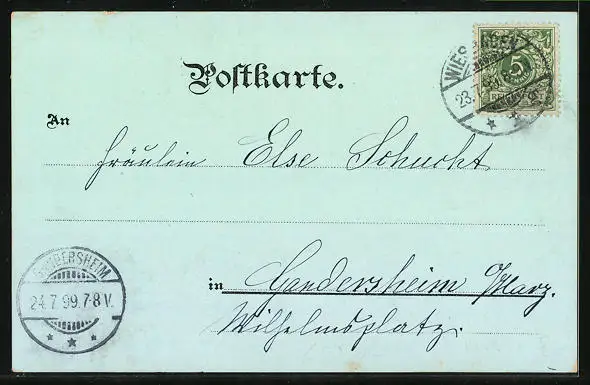 Postkarte.
WIESBADEN
23.7.
5
An
Fräulein Else Schucht.
GANDERSHEIM
24.7.99.7-8V.
in Gandersheim Harz.
Wilhelmsplatz.